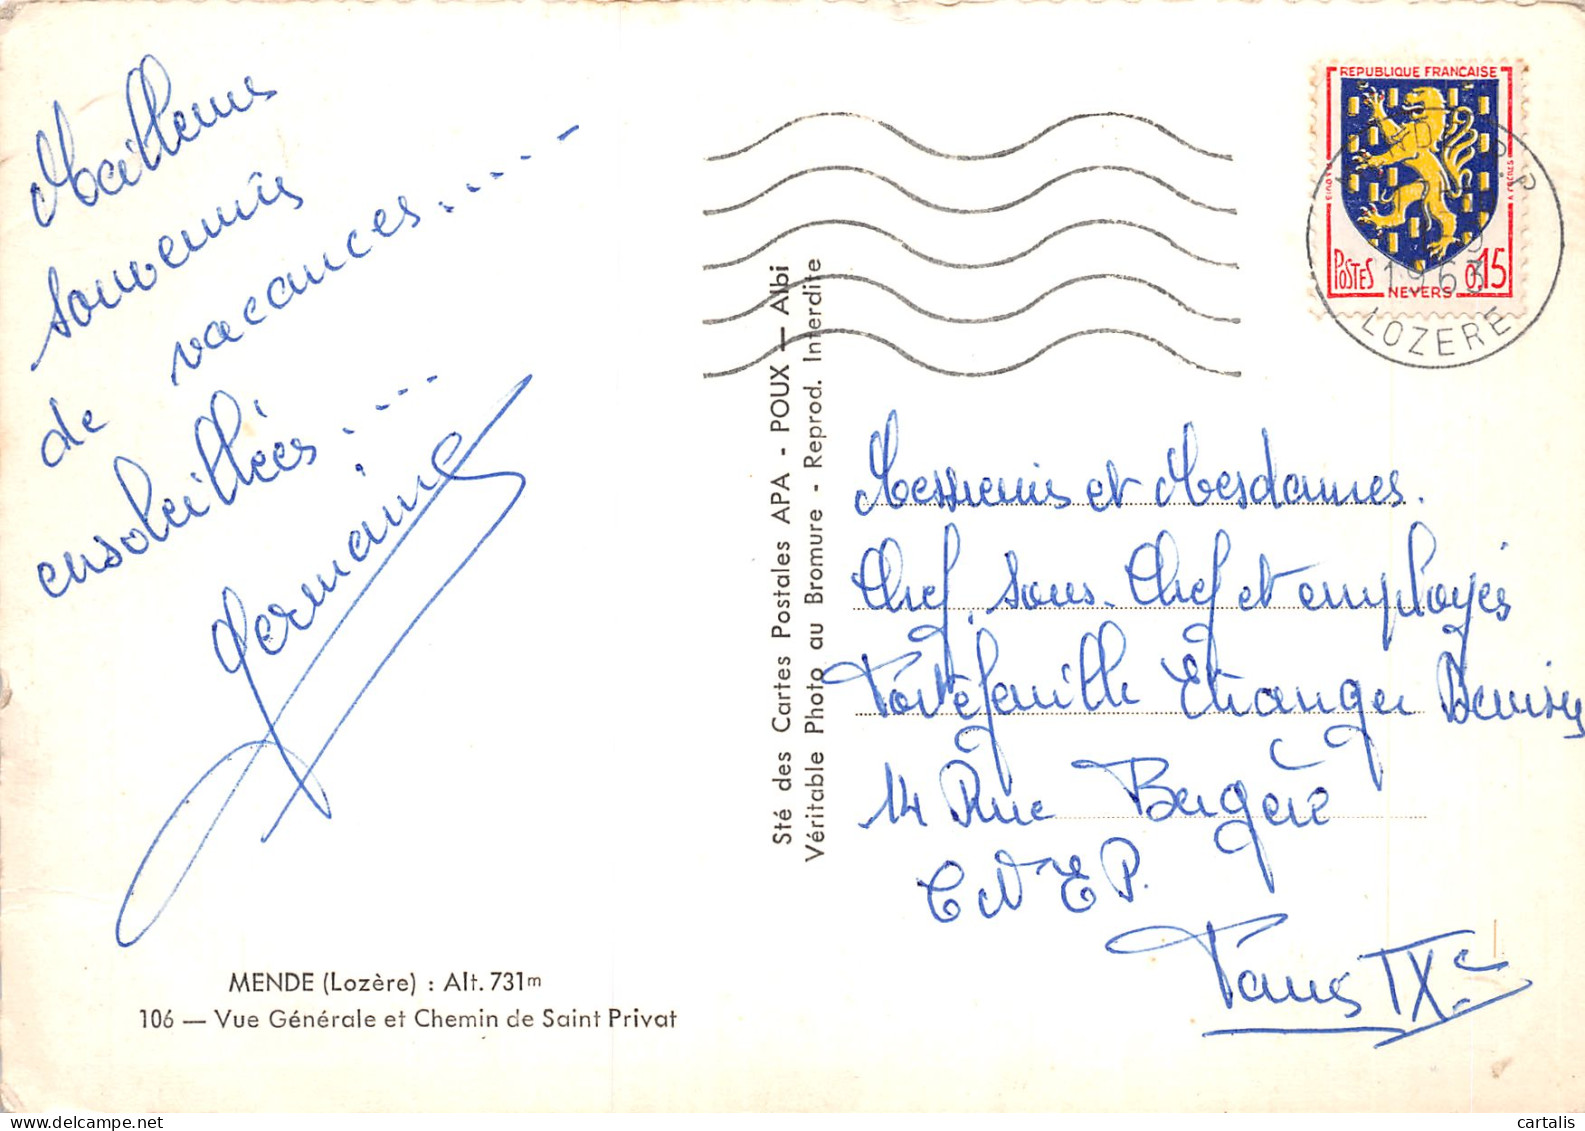 Meilleurs
souvenirs
de vacances........
ensoleillées.....
Germaine
MENDE (Lozère) : Alt. 731m
106 — Vue Générale et Chemin de Saint Privat
Sté des Cartes Postales APA - POUX — Albi
Véritable Photo au Bromure - Reprod. Interdite
REPUBLIQUE FRANCAISE
POSTES
NEVERS
0,15
1963
LOZERE
Messieurs et Mesdames.
Chef. Sous-Chef et employés
Portefeuille Etranger Devises
14 Rue Bergère
C N E P.
Paris IXe
cartalis